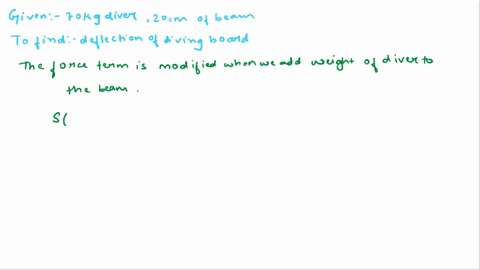 Given:- 70kg diver, 20cm of beam
To find:- deflection of diving board
The force term is modified when we add weight of diver to
the beam.
S(